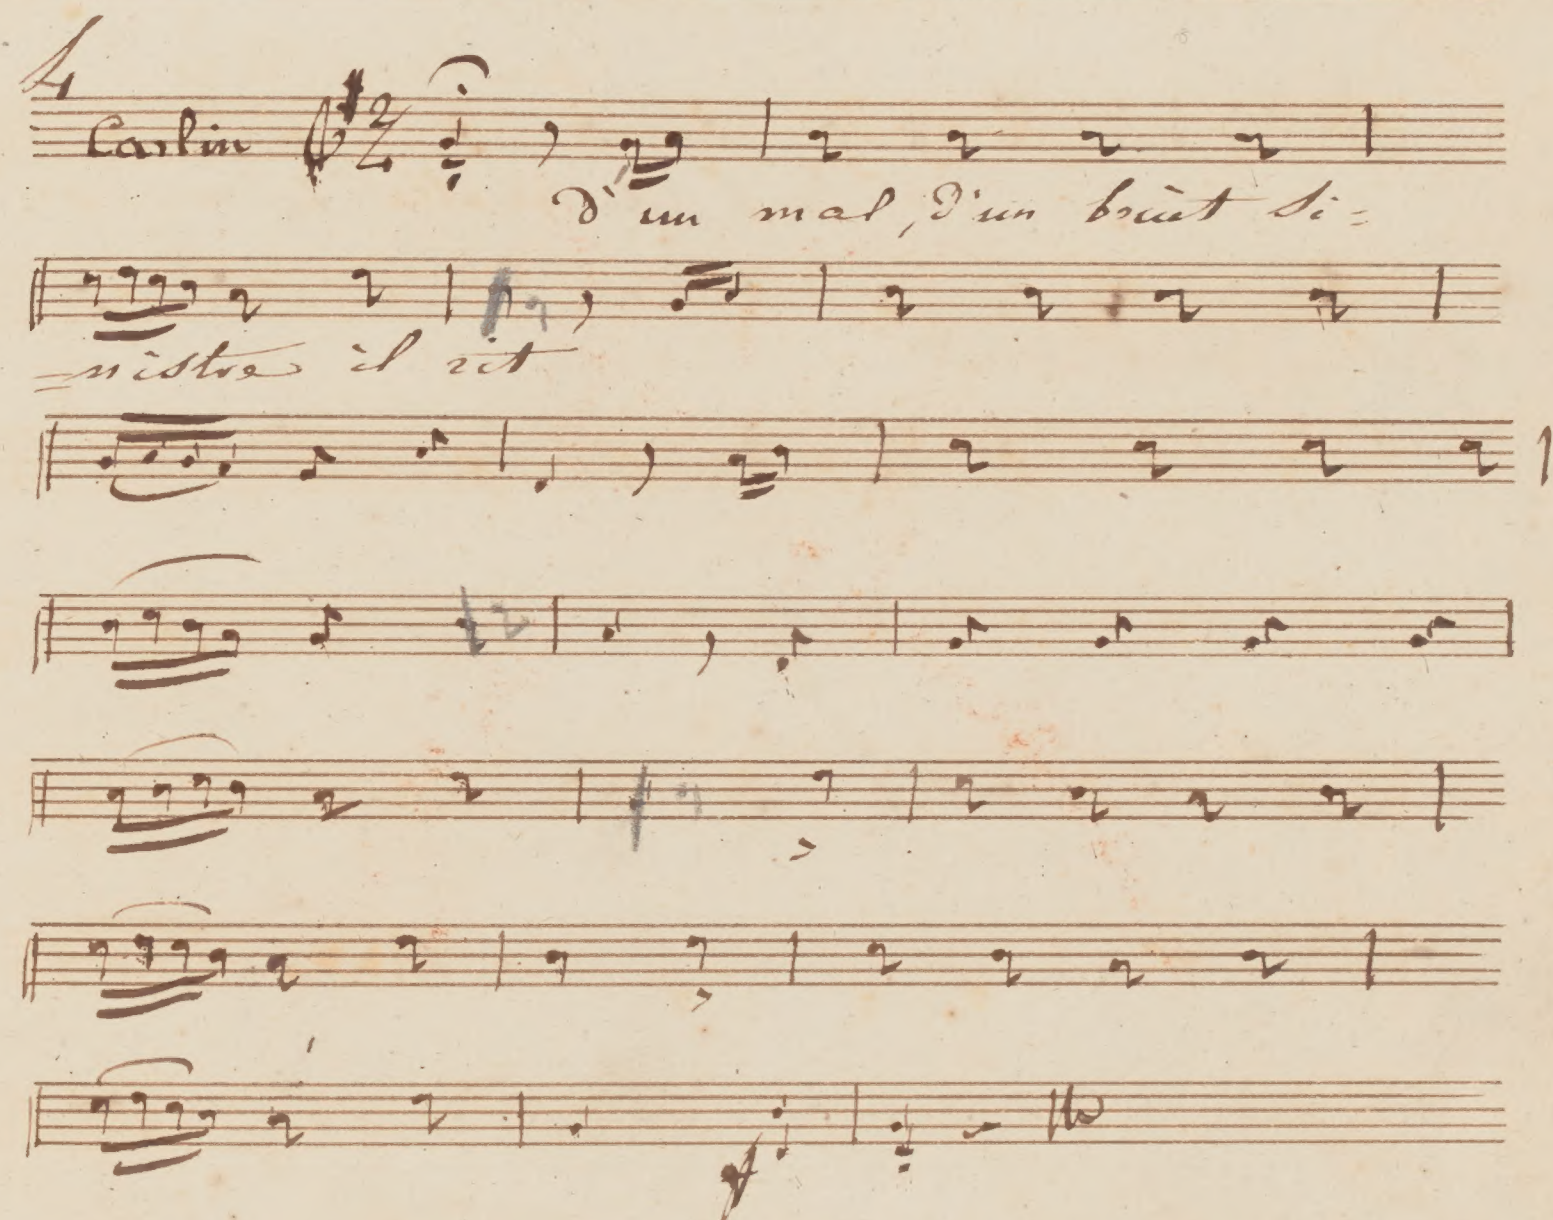 4
Carlin 2/4
d'un mal, d'un bruit si=
=nistre il rit